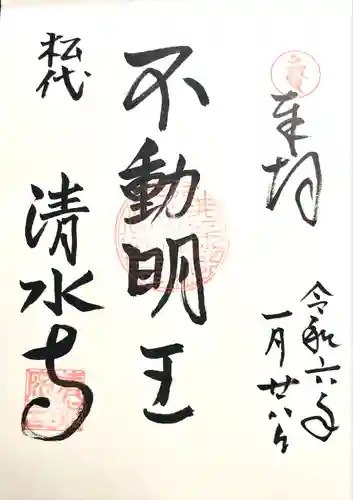 奉拝
令和六年
一月廿八日
不動明王
松代
清水寺